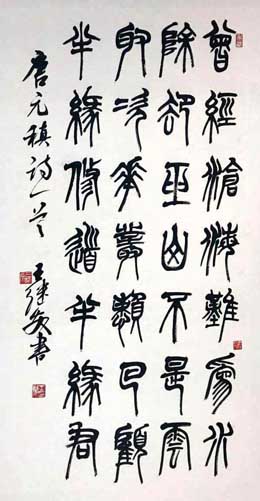 曾經滄海難爲水
除卻巫山不是雲
取次華叢懶回顧
半緣修道半緣君
唐元稹詩一首 王書